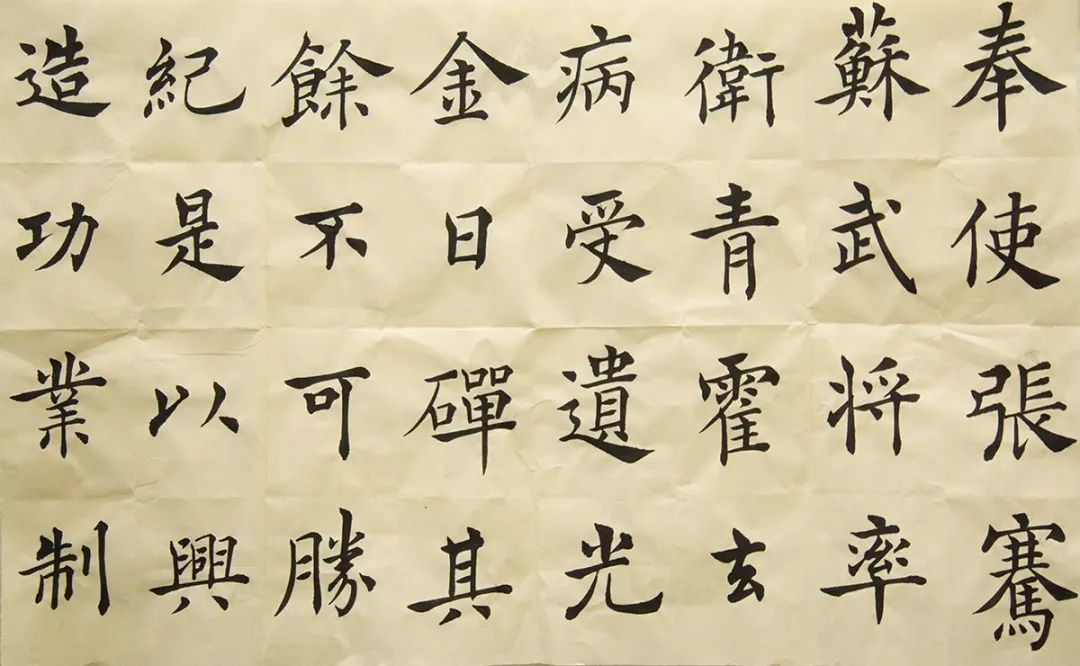 奉使張騫
蘇武將率
衛青霍去
病受遺光
金日磾其
餘不可勝
紀是以興
造功業制